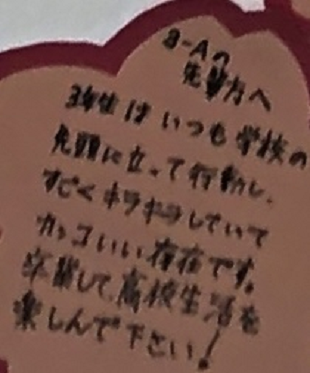 3-Aの
先輩方へ
3年生はいつも学校の
先頭に立って行動し、
すごくキラキラしていて
カッコいい存在です。
卒業して高校生活を
楽しんで下さい！